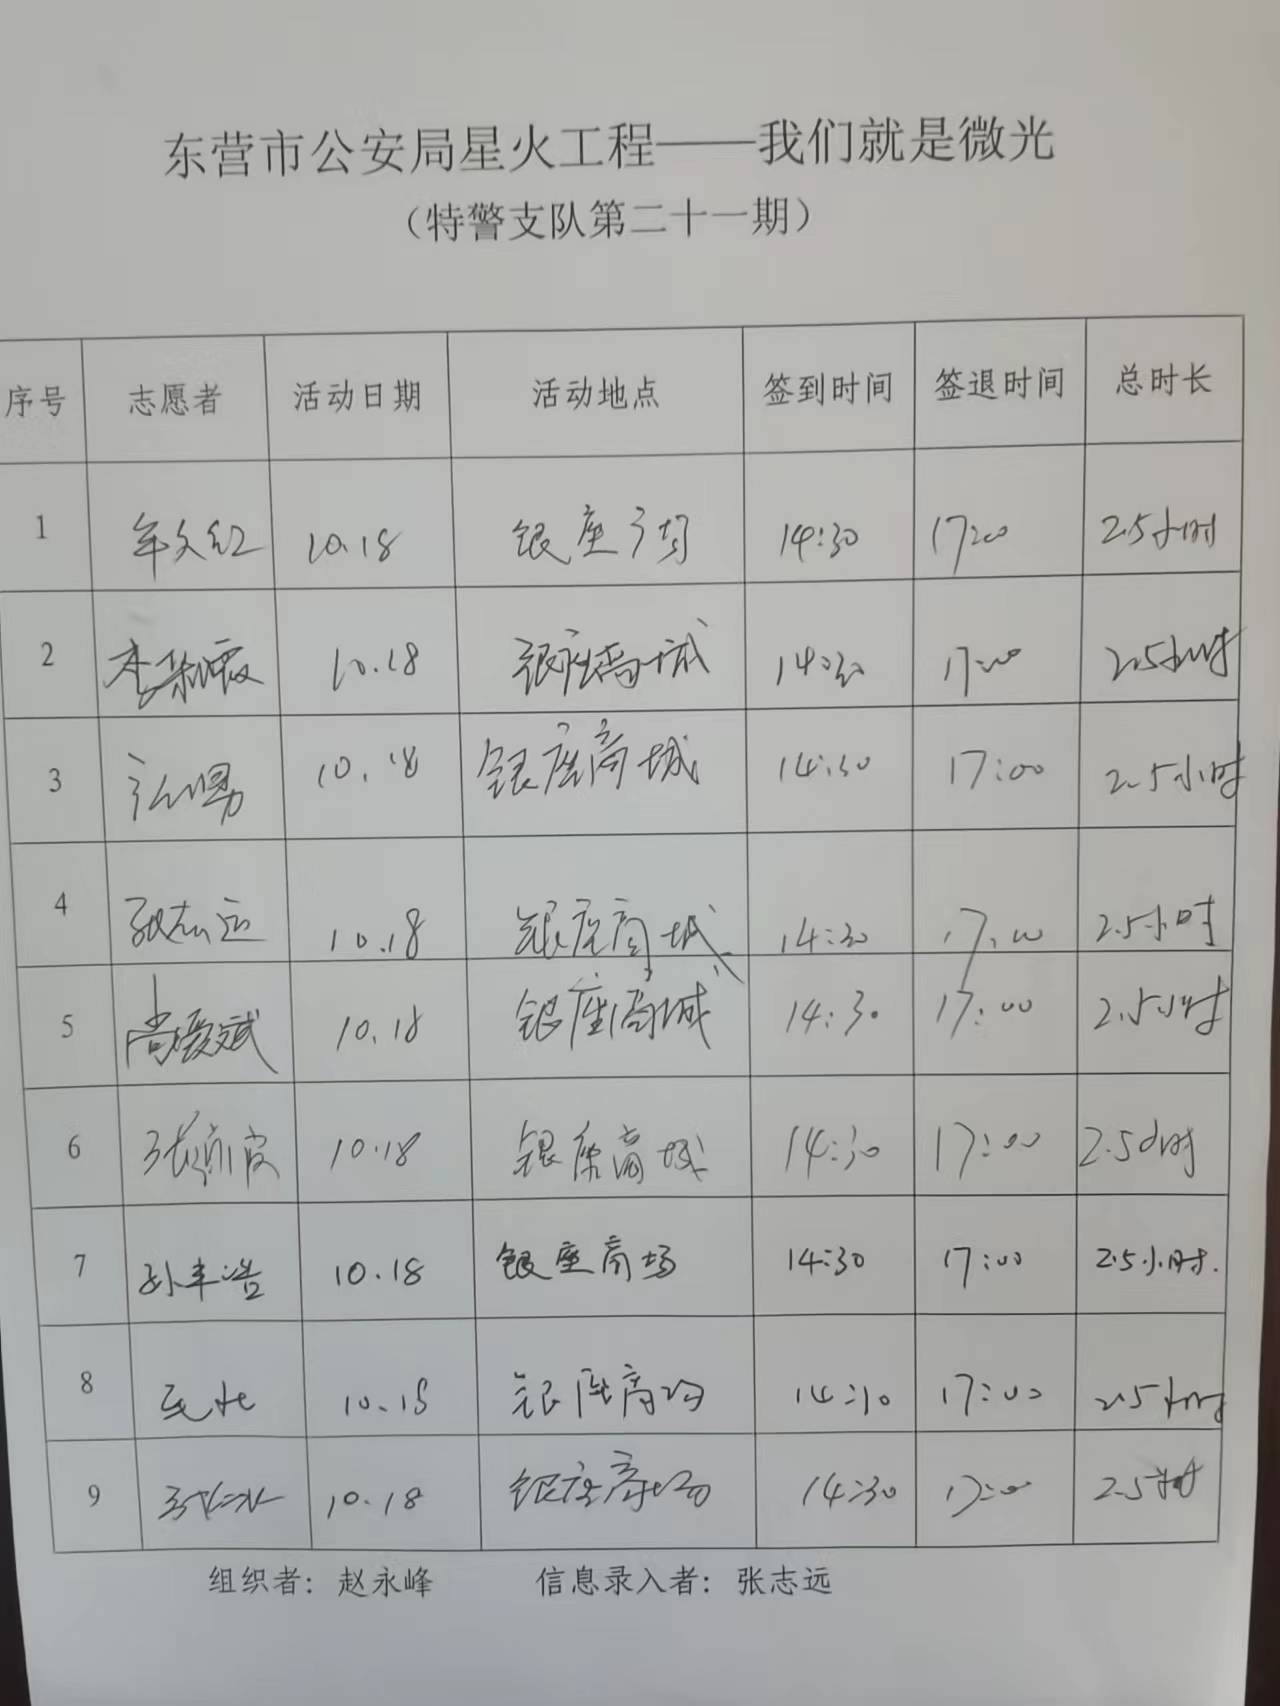 东营市公安局星火工程——我们就是微光
（特警支队第二十一期）
序号 志愿者 活动日期 活动地点 签到时间 签退时间 总时长
1 年文红 10.18 银座广场 14:30 17:00 2.5小时
2 10.18 银座商城 14:30 17:00 2.5小时
3 10.18 银座商城 14:30 17:00 2.5小时
4 张志远 10.18 银座商城 14:30 17:00 2.5小时
5 尚爱斌 10.18 银座商城 14:30 17:00 2.5小时
6 10.18 银座商城 14:30 17:00 2.5小时
7 孙丰浩 10.18 银座商场 14:30 17:00 2.5小时.
8 10.18 银座商场 14:30 17:00 2.5小时
9 10.18 银座商场 14:30 17:00 2.5小时
组织者：赵永峰 信息录入者：张志远